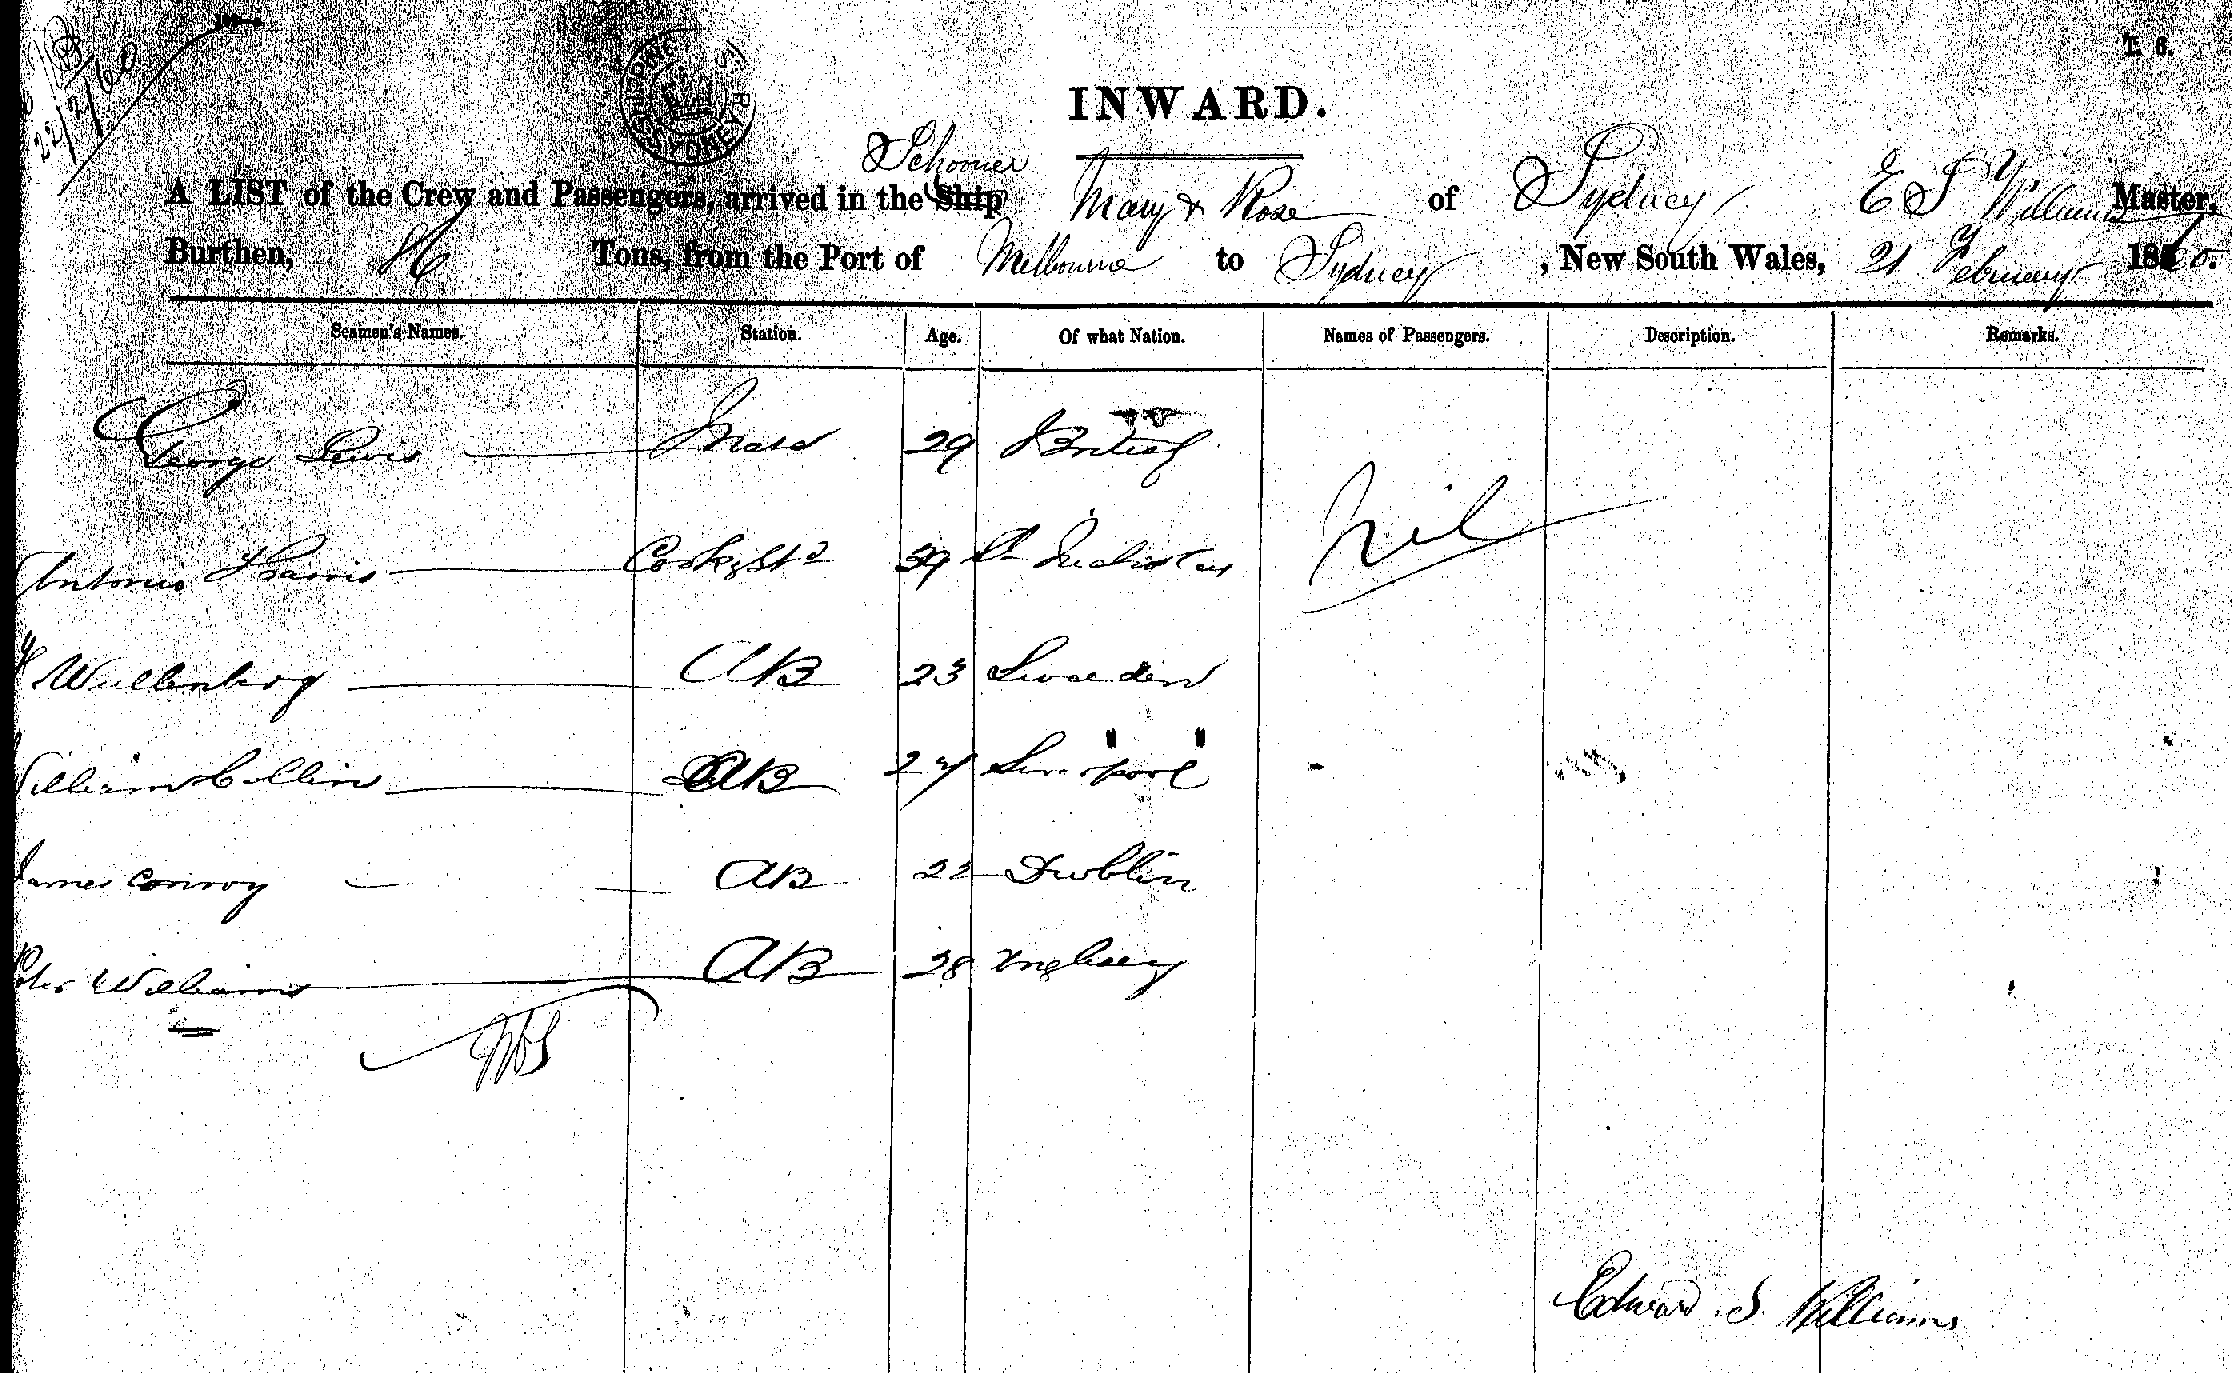 22/2/60
SHIPPING MASTER'S SYDNEY
T. 6.
INWARD.
Schooner
A LIST of the Crew and Passengers, arrived in the Ship Mary & Rose of Sydney E S Williams Master,
Burthen, Tons, from the Port of Melbourne to Sydney, New South Wales, 21 February 1860.
Seamen's Names. Station. Age. Of what Nation. Names of Passengers. Description. Remarks.
George Lewis Mate 29 British
Nil
Antonio Cook & St 39
Wullenberg AB 23 Sweden
William Collins AB 24 Liverpool
James Conroy AB 22 Dublin
Williams AB 28 Anglesey
Edward S Williams